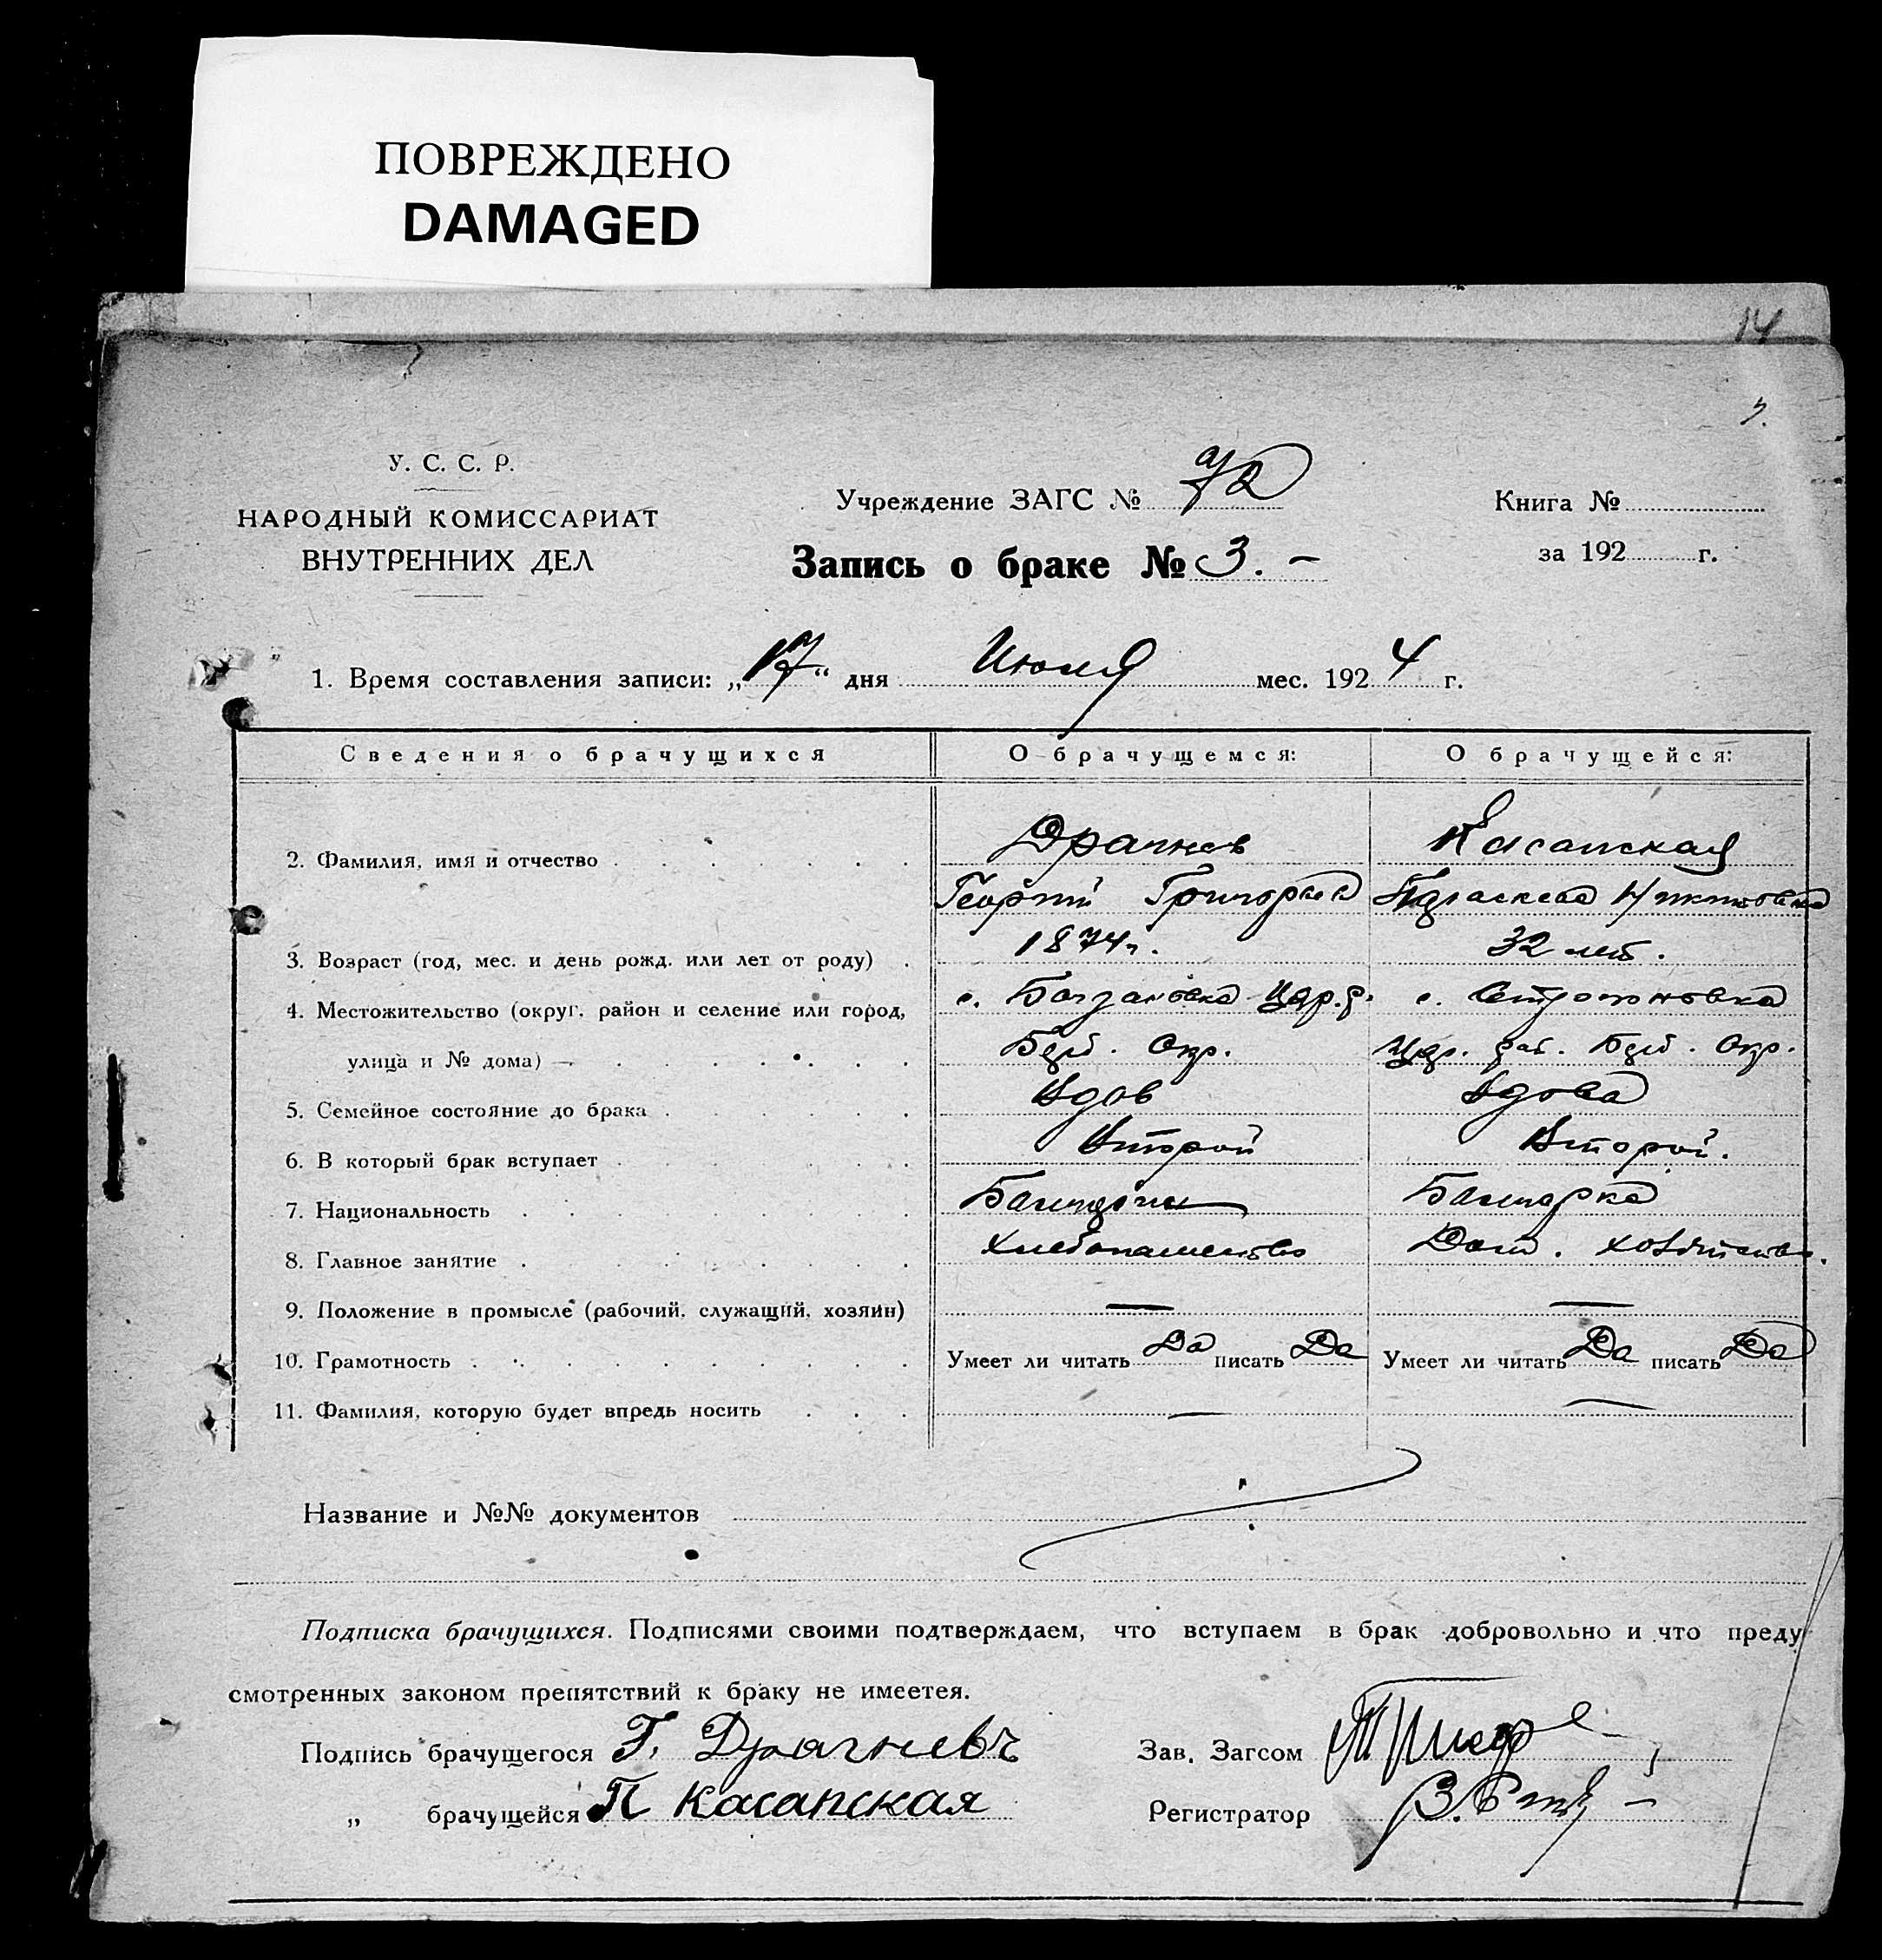 ПОВРЕЖДЕНО
DAMAGED
14
3.
У. С. С. Р.
НАРОДНЫЙ КОМИССАРИАТ
ВНУТРЕННИХ ДЕЛ
Учреждение ЗАГС № 72
Запись о браке № 3. –
Книга №
за 192 г.
1. Время составления записи: „17“ дня Июля мес. 1924 г.
Сведения о брачущихся О брачущемся: О брачущейся:
2. Фамилия, имя и отчество Драгнев Касапская
Георгий Григорьев Параскева Никитовна
3. Возраст (год, мес. и день рожд. или лет от роду) 1874 г. 32 лет.
4. Местожительство (округ, район и селение или город, с. Богдановка Цар. р. с.
улица и № дома) — Бер. Окр. Цар. рай. Бер. Окр.
5. Семейное состояние до брака Вдов Вдова
6. В который брак вступает Второй Второй.
7. Национальность Болгарин Болгарка
8. Главное занятие Хлебопашество Дом. хозяйство.
9. Положение в промысле (рабочий, служащий, хозяин) — —
10. Грамотность Умеет ли читать Да писать Да Умеет ли читать Да писать Да
11. Фамилия, которую будет впредь носить — —
Название и №№ документов
Подписка брачущихся. Подписями своими подтверждаем, что вступаем в брак добровольно и что преду
смотренных законом препятствий к браку не имеетея.
Подпись брачущегося Г. Драгневъ Зав. Загсом
„ брачущейся П Касапская Регистратор